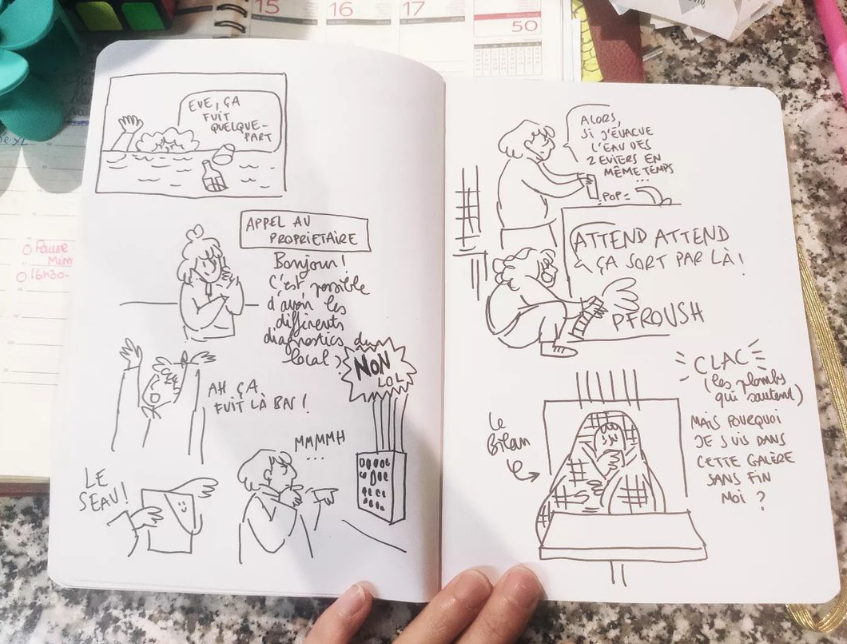 15
16
17
50
EUE, ÇA
FUIT
QUELQUE-
PART
APPEL AU
PROPRIETAIRE
Bonjour!
C'est possible
d'avoir les
différents
diagnostics du
local?
NON
LOL
AH ÇA
FUIT LÀ BAS!
MMMMH
...
LE
SEAU!
Pause
16h30-
ALORS,
SI J'ÉVACUE
L'EAU DES
2 EVIERS EN
MÊME TEMPS
...
POP
ATTEND ATTEND
ÇA SORT PAR LÀ!
PFROUSH
CLAC
(les plombs
qui sautent)
Le
Bilan
MAIS POURQUOI
JE SUIS DANS
CETTE GALÈRE
SANS FIN
MOI?